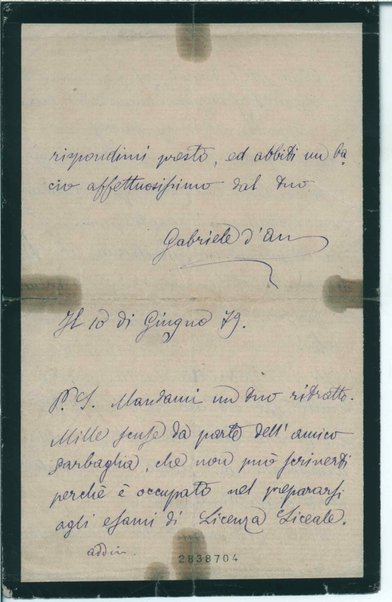 rispondimi presto, ed abbiti un ba
cio affettuosissimo dal tuo
Gabriele d'An
Il 10 di Giugno 79.
P. S. Mandami un tuo ritratto.
Mille scuse da parte dell'amico
Garbaglia, che non può scriverti
perchè è occupato nel prepararsi
agli esami di Licenza Liceale.
addio.
2838704